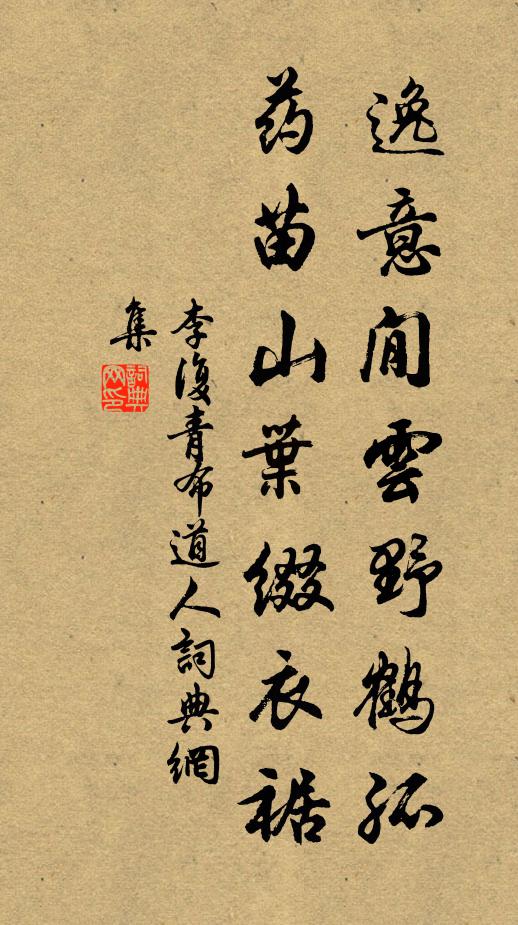 逸意閒雲野鶴孤
药苗山葉綴衣裾
李復青布道人詞典網
集
詞典網印